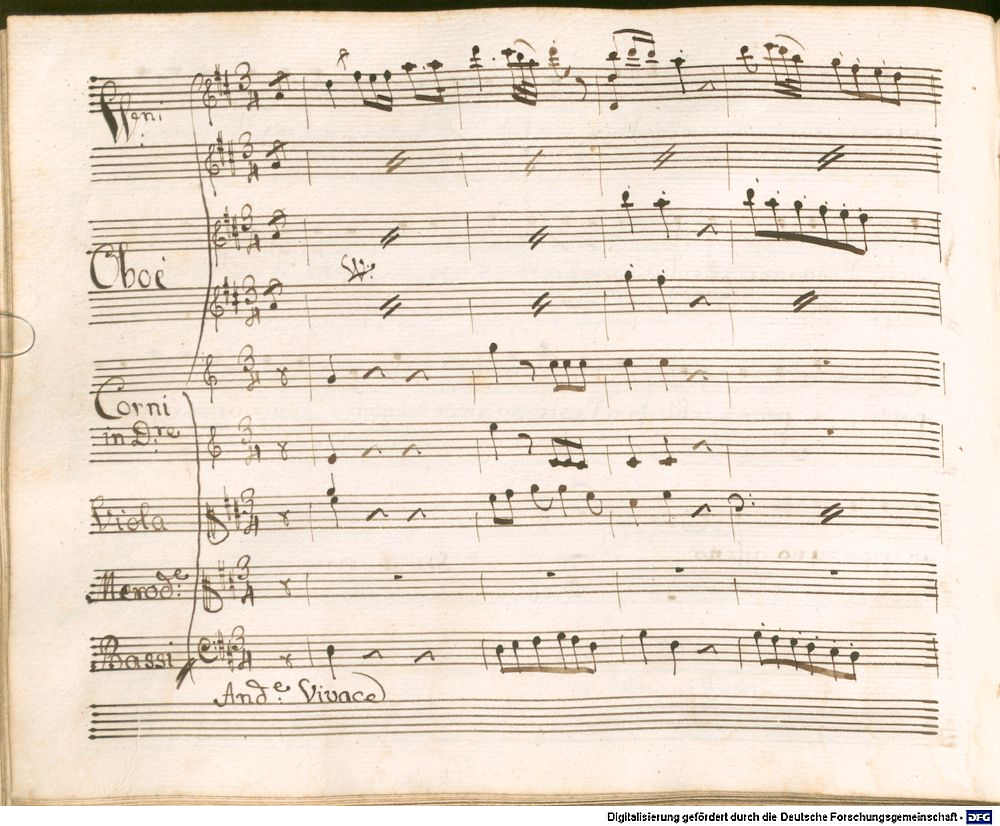 VVni
Oboè
Corni
in D.re
Viola
Merod.e
Bassi
And.e Vivace
Digitalisierung gefördert durch die Deutsche Forschungsgemeinschaft - DFG